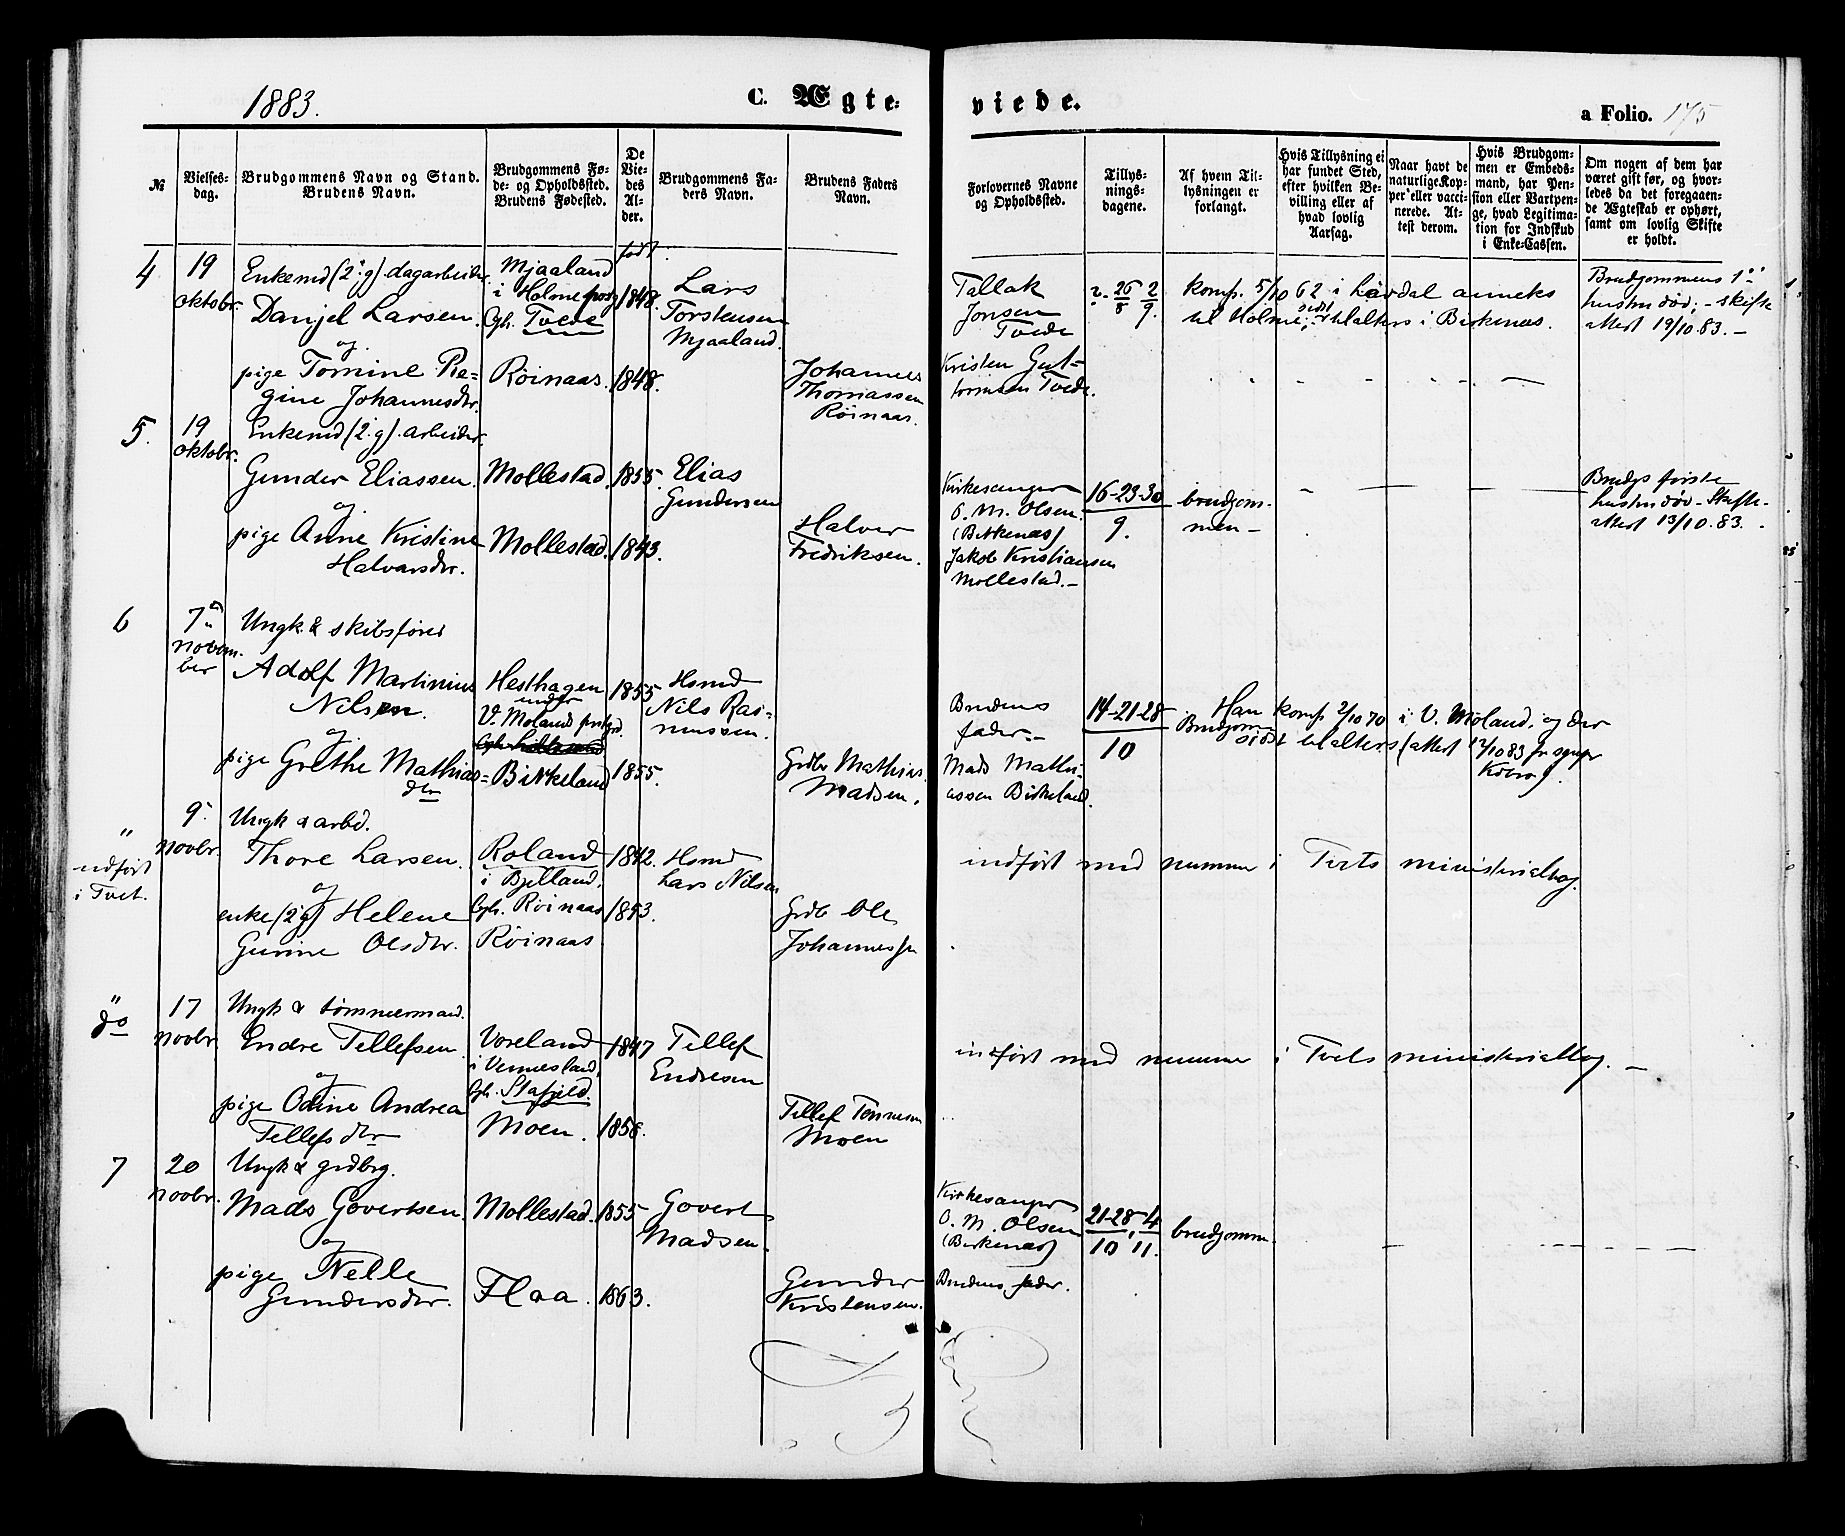 1883.
C. Ægte-
viede.
a Folio. 175
№
Vielses-
dag.
Brudgommens Navn og Stand.
Brudens Navn.
Brudgommens Fø-
de- og Opholdssted.
Brudens Fødested.
De
Vie-
des
Al-
der.
Brudgommens Fa-
ders Navn.
Brudens Faders
Navn.
Forlovernes Navne
og Opholdssted.
Tillys-
nings-
dagene.
Af hvem Til-
lysningen er
forlangt.
Hvis Tillysning ei
har fundet Sted,
efter hvilken Be-
villing eller af
hvad lovlig
Aarsag.
Naar havt de
naturlige Kop-
per eller vacci-
nerede. At-
test derom.
Hvis Brudgom-
men er Embeds-
mand, har Pen-
sion eller Vartpen-
ge, hvad Legitima-
tion for Indskud
i Enke-Cassen.
Om nogen af dem har
været gift før, og hvor-
ledes da det foregaaen-
de Ægteskab er ophørt,
samt om lovlig Skifte
er holdt.
født
4
19
oktobr.
Enkemd (2.g) dagarbeider
Danjel Larsen.
og
pige Tomine Re-
gine Johannesdtr.
Mjaaland
i Holme prstg
Oph. Tvede
Røinaas.
1848.
1848.
Lars
Torstensen
Mjaaland.
Johannes
Thomassen
Røinaas.
Tallak
Jonsen
Tvede
Kristen Gut-
tormsen Tvede.
26 2
8 9.
komf. 5/10 62 i Løvdal anneks
til Holme; sidst til alters i Birkenæs.
Brudgommens 1ste
hustru død; - skifte
attest 19/10.83. -
5.
19
oktobr.
Enkemd (2.g). arbeider.
Gunder Eliassen.
og
pige Anne Kristine
Halvorsdtr.
Mollestad.
Mollestad.
1855.
1843.
Elias
Gundersen
Halvor
Fredriksen.
Kirkesanger
O. M. Olsen.
(Birkenæs)
Jakob Kristiansen
Mollestad. -
16-23-30
9.
brudgom-
men -
Brudgs første
hustru død - Skifte-
attest 13/10.83.
6
7de
novem-
ber
Ungk. & skibsfører
Adolf Martinius
Nilsen.
og
pige Grethe Mathias-
dtr
Hesthagen
under
V. Moland prstgd.
Birkeland
1855
1855.
Hsmd
Nils Ras-
mussen.
Grdbr Mathias
Madsen.
Brudens
fader. -
Mads Mathi-
assen Birkeland.
14-21-28
10
Brudgom
Han komf 2/10 70 i V. Moland. og der
sidst til alters (attest 12/10 83 fr sgnpr
"
indført
i Tvet.
9.
novbr.
Ungk & arbd.
Thore Larsen.
og
enke (2 g) Helene
Gurine Olsdtr.
Roland
i Bjelland.
Oph. Røinaas
Røinaas
1842.
1853.
Hsmd
Lars Nilsen
Grdbr Ole
Johannessen
indført med nummer i Tvets ministerialbog.
"
do
17
novbr.
Ungk & tømmermand.
Endre Tellefsen.
og
pige Odine Andrea
Tellefsdtr
Voreland
i Vennesland,
Oph. Stafjeld.
Moen.
1847
1858.
Tellef
Endresen
Tellef Tønnesen
Moen
indført med nummer i Tvets ministerialbog. -
7
20
novbr.
Ungk & grdbrg.
Mads Govertsen.
og
pige Nelle
Gundersdtr.
Mollestad.
Flaa.
1855
1863.
Govert
Madsen.
Gunder
Kristensen.
Kirkesanger
O. M. Olsen
(Birkenæs)
Brudens fader.
21-28, 4
10 11.
brudgomm.